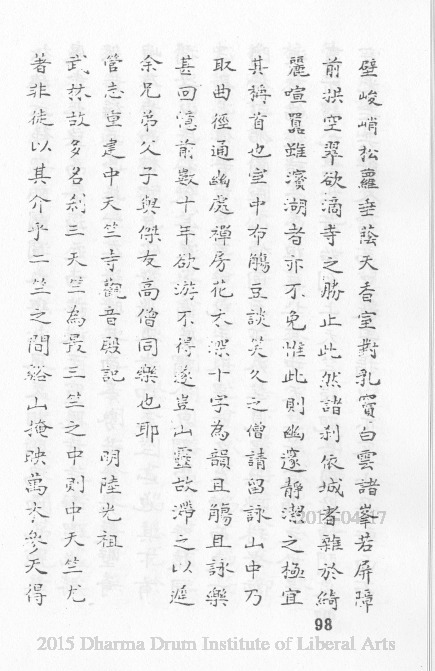 壁峻峭松蘿垂蔭天香室對乳竇白雲諸峯若屏障
前拱空翠欲滴寺之勝止此然諸刹依城者雜於綺
麗喧囂雖瀕湖者亦不免惟此則幽邃靜潔之極宜
其稱首也室中布觴豆談笑久之僧請留詠山中乃
取曲徑通幽處禪房花木深十字為韻且觴且詠樂
甚回憶前數十年欲游不得遂豈山靈故滯之以遲
余兄弟父子與傑友高僧同樂也耶
管志重建中天竺寺觀音殿記 明陸光祖
武林故多名刹三天竺為最三竺之中則中天竺尤
著非徒以其介乎二竺之間谿山掩映萬木參天得
98
2015 Dharma Drum Institute of Liberal Arts